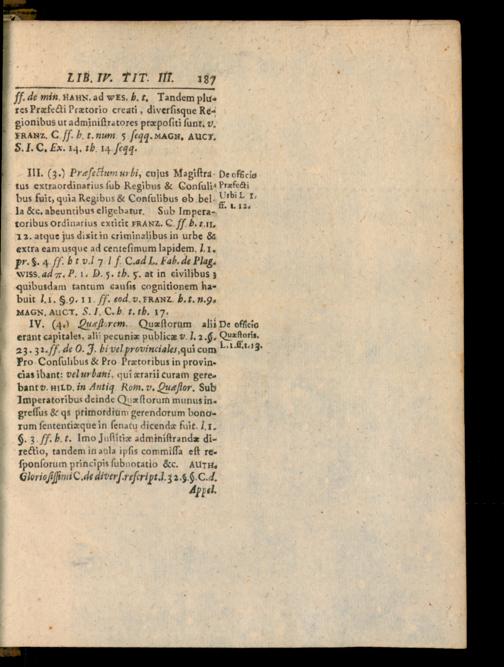 LIB. IV. TIT. III. 187
ff. de min. HAHN. ad WES. h. t. Tandem plu-
res Præfecti Prætorio creati, diversisque Re-
gionibus ut administratores præpositi sunt. v.
FRANZ. C. ff. h. t. num 5 seqq. MAGN. AUCT.
S. I. C. Ex. 14. th. 14 seqq.
III. (3.) Præfectum urbi, cujus Magistra-
tus extraordinarius sub Regibus & Consuli-
bus fuit, quia Regibus & Consulibus ob bel-
la &c. abeuntibus eligebatur. Sub Impera-
toribus ordinarius extitit FRANZ. C. ff. h. t. 11.
12. atque jus dixit in criminalibus in urbe &
extra eam usque ad centesimum lapidem. l. 1.
pr. §. 4. ff. h t v. l 7 l f. C. ad L. Fab. de Plag.
WISS. ad π. P. 1. D. 5. th. 5. at in civilibus 3
quibusdam tantum causis cognitionem ha-
buit l. 1. §. 9. 11 ff. eod v. FRANZ. h. t. n. 9.
MAGN. AUCT. S. I. C. h. t. th. 17.
De officio
Præfecti
Urbi L 1.
ff. t. 12.
IV. (4.) Quæstorem. Quæstorum alii
erant capitales, alii pecuniæ publicæ v. l. 2. §.
23. 31. ff. de O. J. hi vel provinciales, qui cum
Pro Consulibus & Pro Prætoribus in provin-
cias ibant: vel urbani, qui ærarii curam gere-
bant v. HILD. in Antiq. Rom. v. Quæstor. Sub
Imperatoribus deinde Quæstorum munus in-
gressus & qs primordium gerendorum bono-
rum sententiæque in senatu dicendæ fuit. l. 1.
§. 3. ff. h. t. Imo Justitiæ administrandæ di-
rectio, tandem in aula ipsis commissa est re-
sponsorum principis subnotatio &c. AUTH.
Gloriosissimi C. de divers. rescript. l. 32. §. §. C. d.
Appel.
De officio
Quæstoris.
L. 1. ff. t. 13.